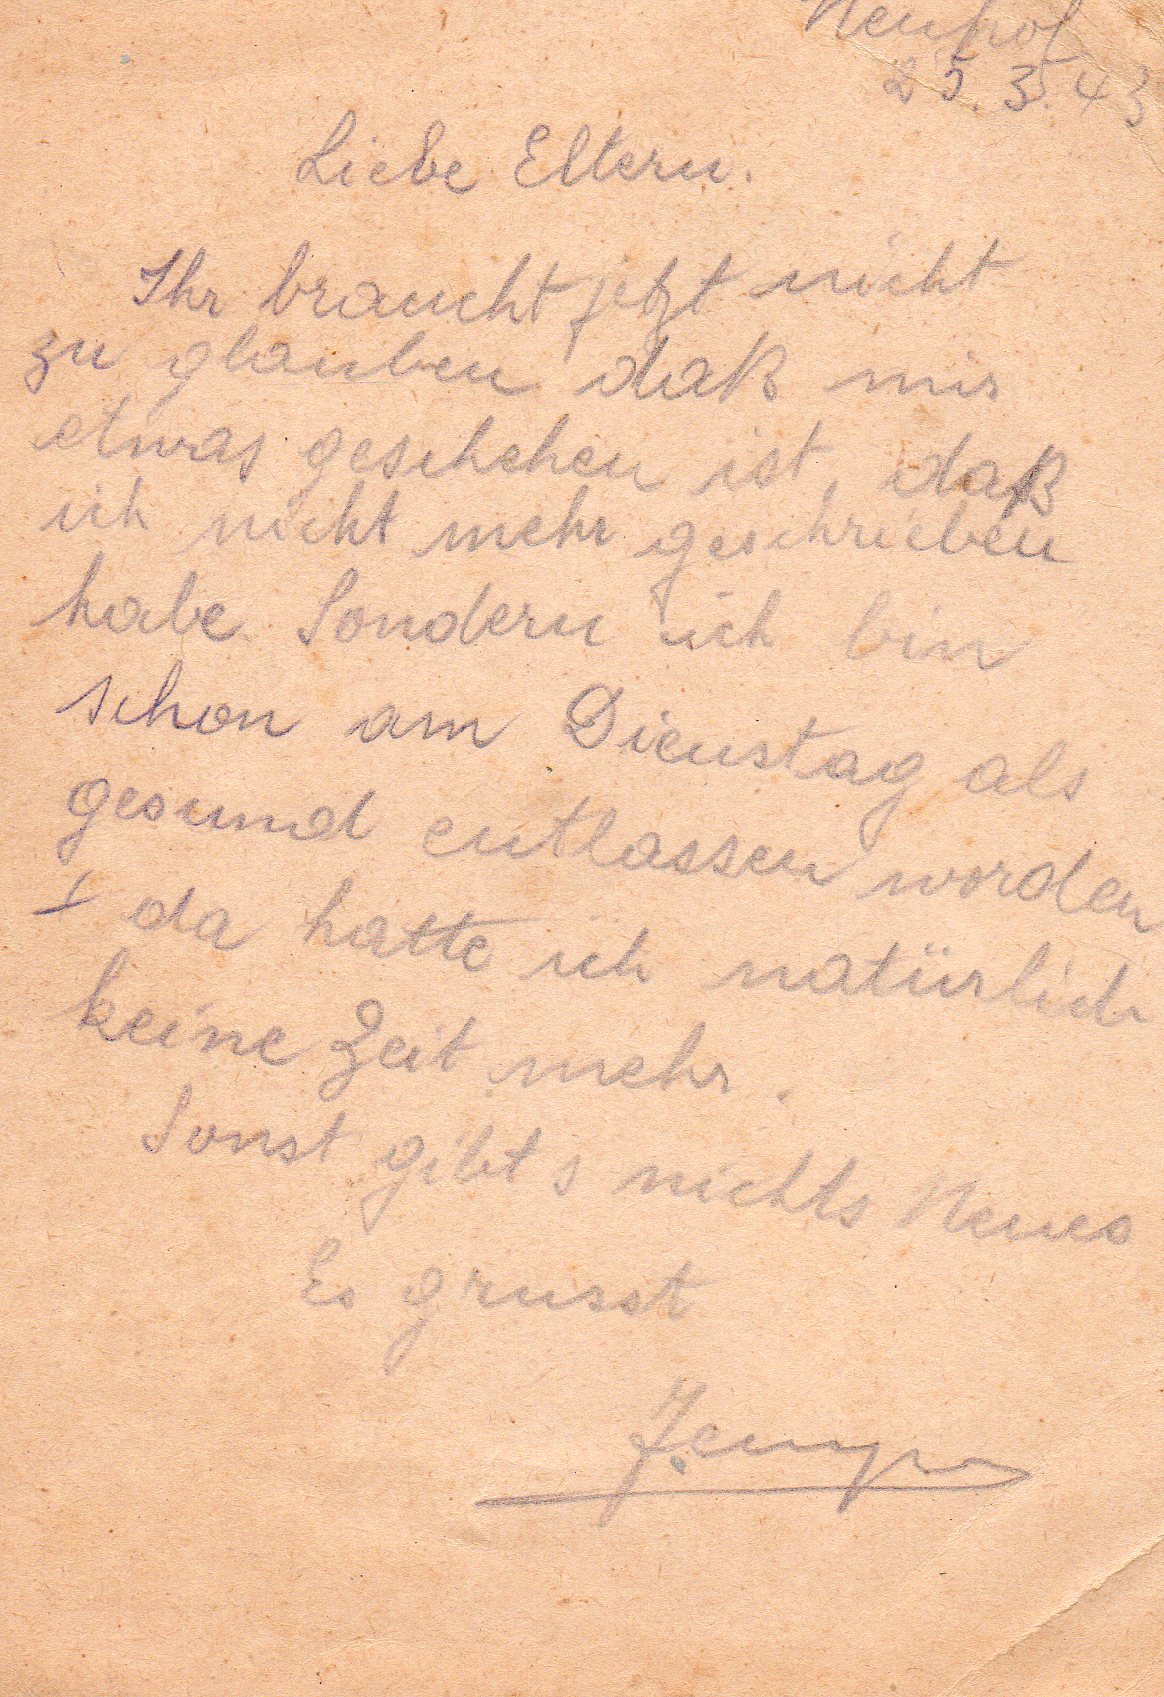 Neuhof
25.3.43
Liebe Eltern.
Ihr braucht jetzt nicht
zu glauben daß mir
etwas geschehen ist, daß
ich nicht mehr geschrieben
habe. Sondern ich bin
schon am Dienstag als
gesund entlassen worden
+ da hatte ich natürlich
keine Zeit mehr.
Sonst gibt s nichts Neues
Es grusst